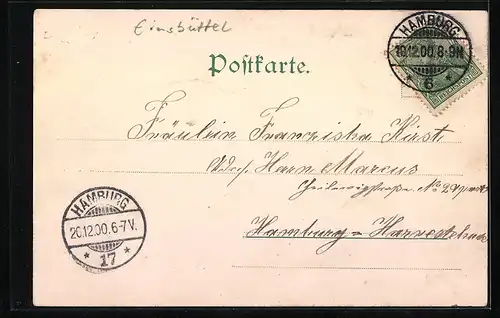 Eimsbüttel
HAMBURG
19.12.00.8-9N
* 6 *
Postkarte.
Fräulein Franziska Hirst.
Adr. Herrn Marcus
No
HAMBURG
20.12.00.6-7V.
* 17 *
Hamburg - Harvestehude